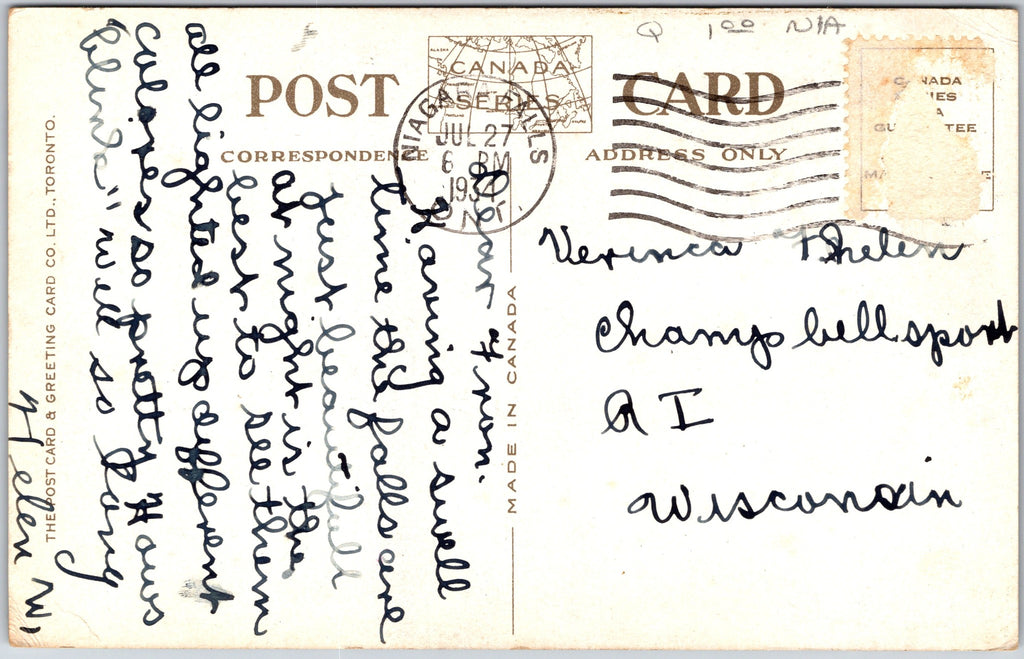 Q 1 00 NIA
POST CARD
CANADA
SERIES
CORRESPONDENCE
ADDRESS ONLY
NIAGARA FALLS
JUL 27
6 PM
1934
ONT.
CANADA
Dear Fron.
Having a swell
time the falls are
just beautiful
at night is the
best to see them
all lighted up different
colones so pretty Hows
blinda" well so long
Helen W.
Verinca Thelen
Champbellsport
R I
Wisconsin
MADE IN CANADA
THE POST CARD & GREETING CARD CO. LTD., TORONTO.